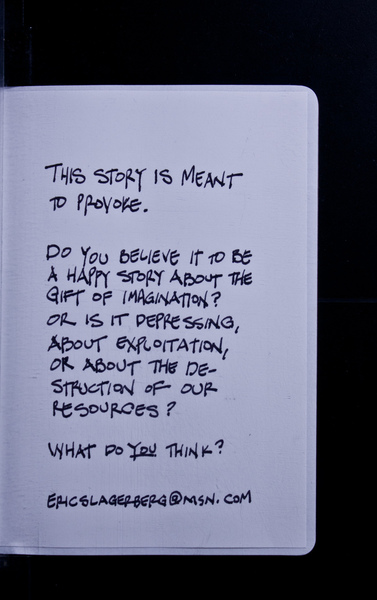 THIS STORY IS MEANT
TO PROVOKE.
DO YOU BELIEVE IT TO BE
A HAPPY STORY ABOUT THE
GIFT OF IMAGINATION?
OR IS IT DEPRESSING,
ABOUT EXPLOITATION,
OR ABOUT THE DE-
STRUCTION OF OUR
RESOURCES?
WHAT DO YOU THINK?
ERICSLAGERBERG@MSN.COM